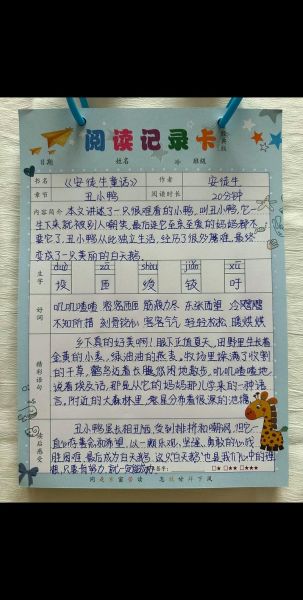 阅读记录卡
日期 姓名 班级
书名 《安徒生童话》 作者 安徒生
章节 丑小鸭 阅读时长 20分钟
内容简介 本文讲述了一只很难看的小鸭，叫丑小鸭，它一
生下来就被别人嘲笑，最后连它至亲至爱的妈妈都不
要它了，丑小鸭从此独立生活，经历了很多磨难，最终
变成了一只美丽的白天鹅。
生字
圾 匝 绶 铰 吁
好词 叽叽喳喳 筋疲力尽 东张西望 冷飕飕
不知所措 刻骨铭心 客客气气 轻轻松松 暖烘烘
精彩语句 乡下真的好美啊！眼下正值夏天，田野里生长着
金黄的小麦，绿油油的燕麦，牧场里垛满了收割
的干草，鹳鸟迈着长腿悠闲地散步，叽叽喳喳地
说着埃及话，那是从它的妈妈那儿学来的一种语
言，附近的大森林里，
读后感受 丑小鸭虽长相丑陋，受到排挤和嘲讽，但它一
直心存善念和希望，以一颗乐观、坚强、勇敢的心战
胜困难，最后成为白天鹅。这只“白天鹅”也是我们心中的理
想，只要有努力，就一定能成功